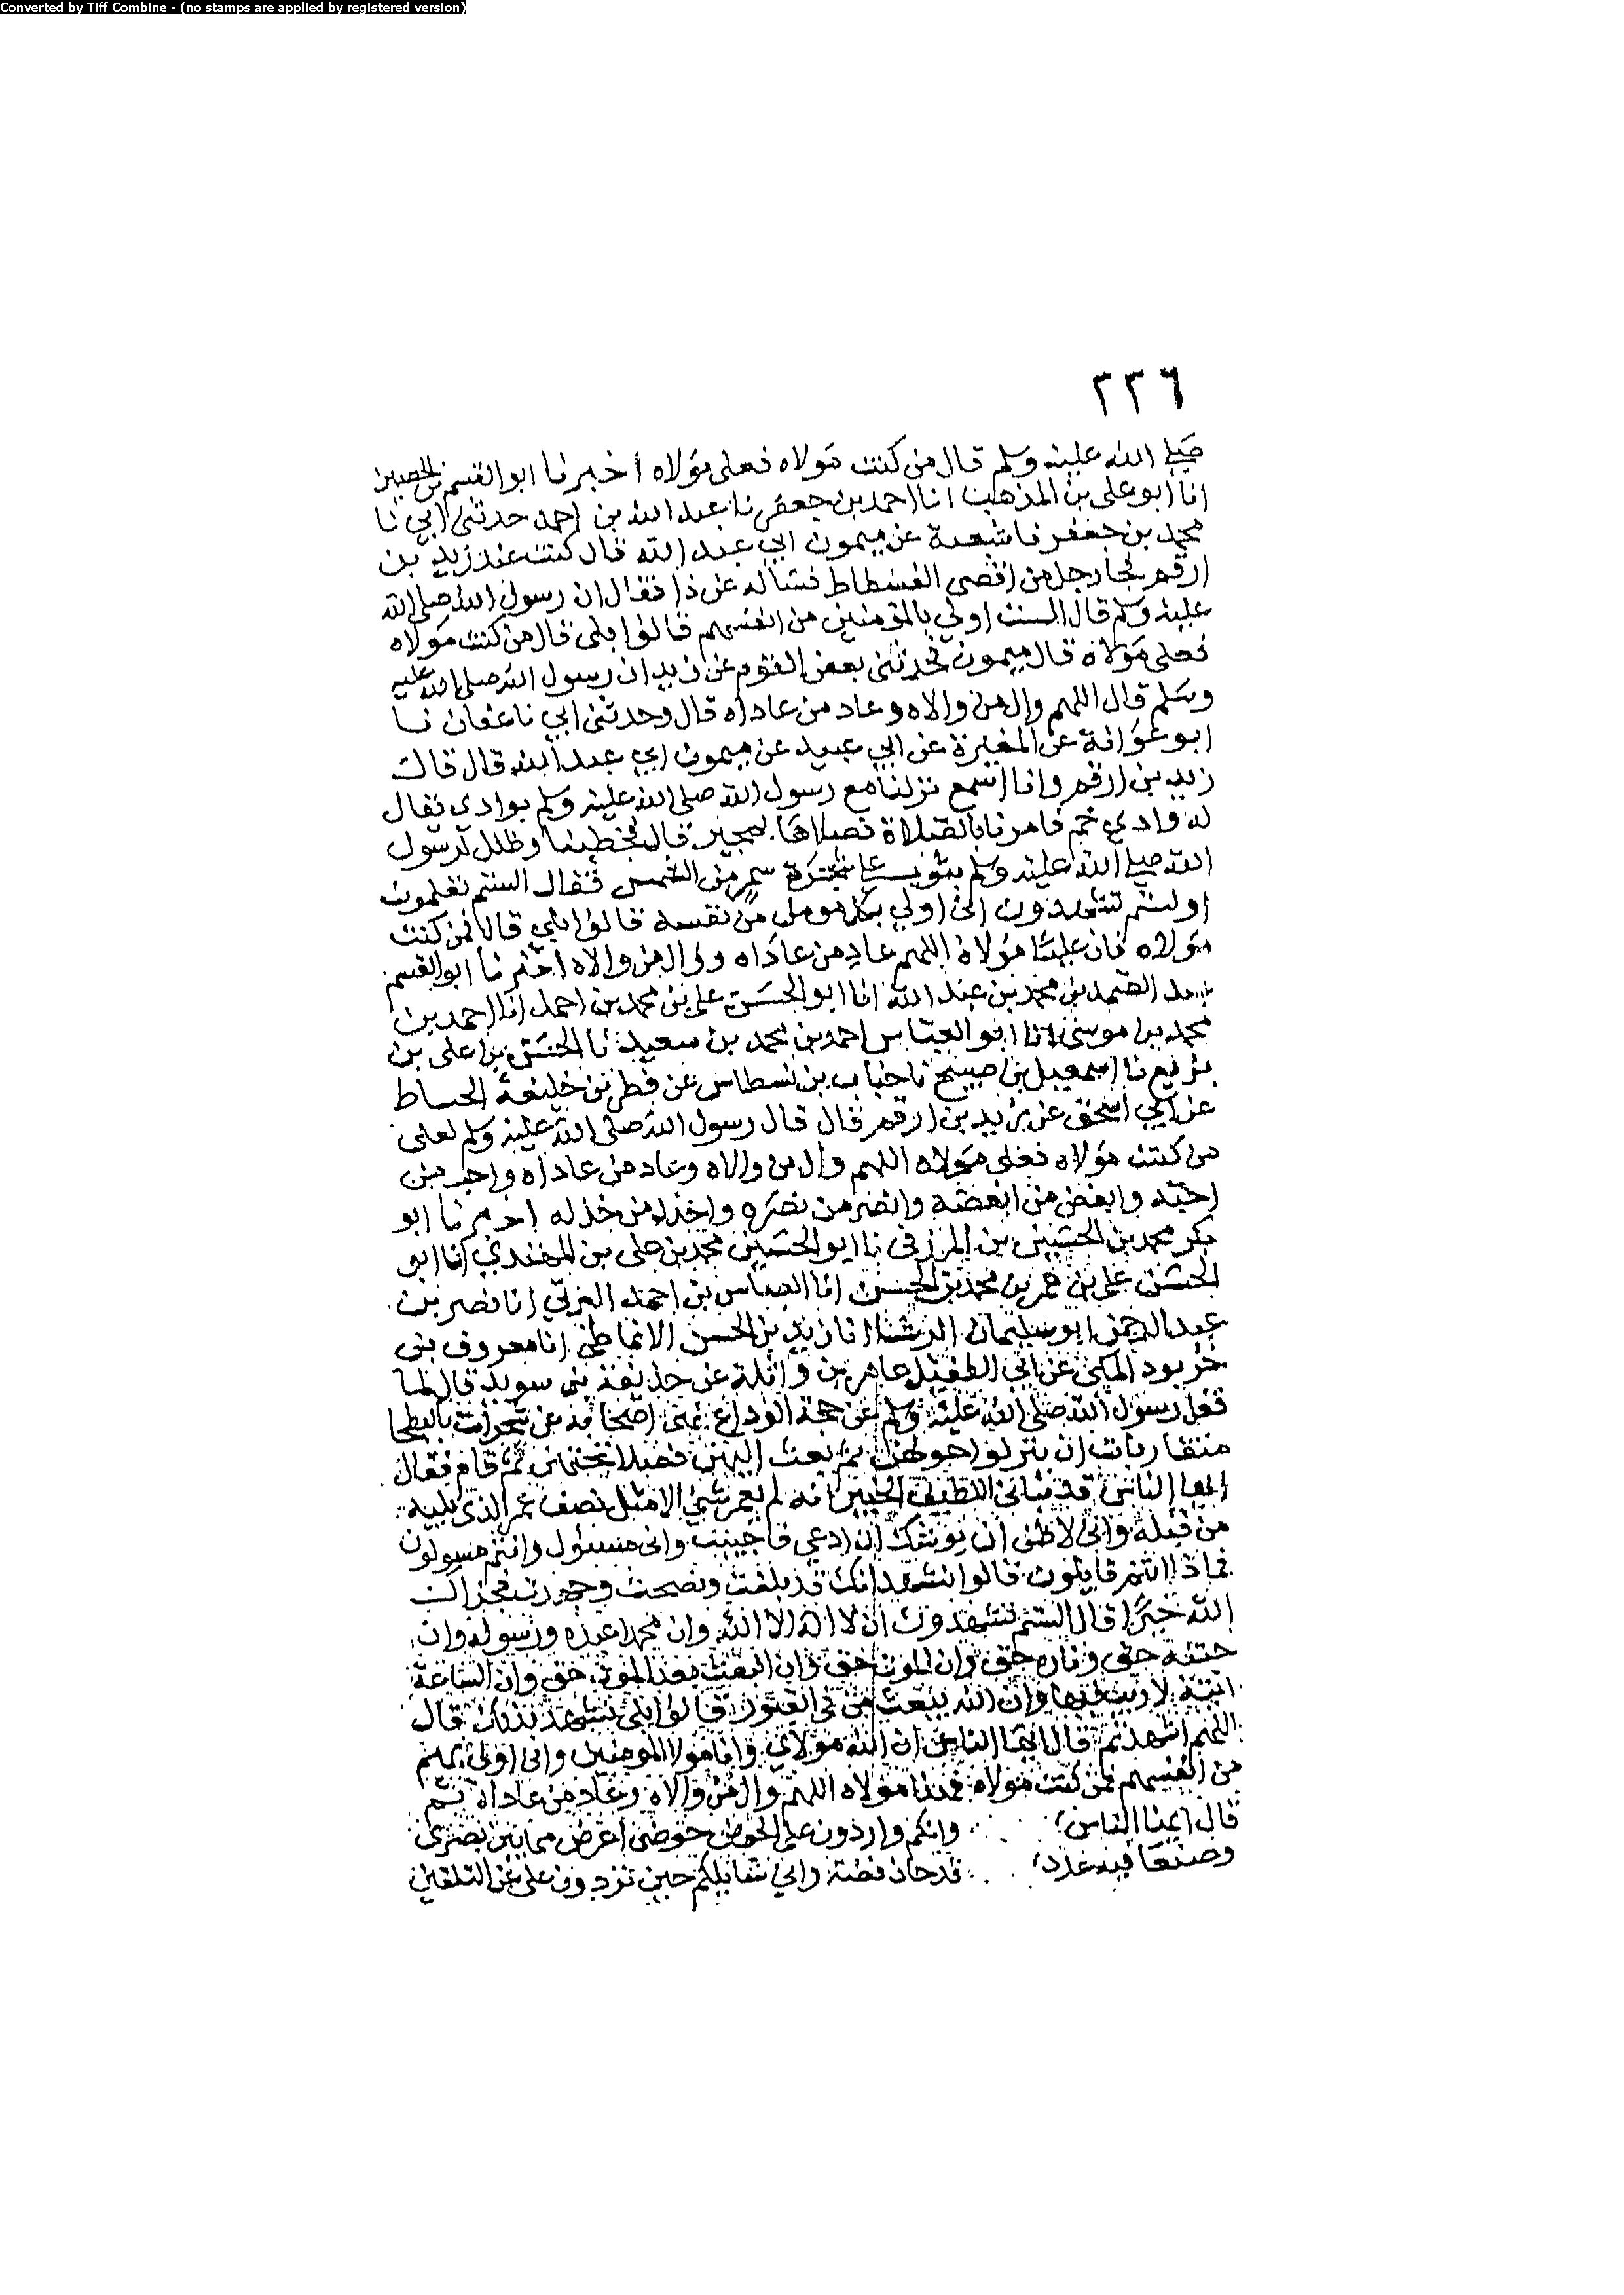 Converted by Tiff Combine - (no stamps are applied by registered version)
٢٢٦
صلى الله عليه وسلم قال من كنت مولاه فعلى مولاه أخبرنا ابو القسم بن الحصين
انا أبو على بن المذهب انا احمد بن جعفر نا عبد الله بن احمد حدثنى ابي نا
محمد بن جعفر نا شعبة عن ميمون ابي عبد الله قال كنت عند زيد بن
ارقم فجا رجل من اقصى الفسطاط فسأله عن ذا فقال ان رسول الله صلى الله
عليه وسلم قال الست اولي بالمؤمنين من انفسهم قالوا بلى قال من كنت مولاه
فعلى مولاه قال ميمون فحدثنى بعض القوم عن زيد ان رسول الله صلى الله عليه
وسلم قال اللهم وال من والاه وعاد من عاداه قال وحدثنى ابي نا عفان نا
ابو عوانة عن المغيرة عن ابي عبيد عن ميمون ابي عبد الله قال قال
زيد بن ارقم وانا اسمع نزلنا مع رسول الله صلى الله عليه وسلم بوادى يقال
له وادي خم فامرنا بالصلاة فصلاها بهجير قال فخطبنا وظلل لرسول
الله صلى الله عليه وسلم بثوب على شجرة سمر من الشمس فقال الستم تعلمون
اولستم تشهدون انى اولي بكل مومن من نفسه قالوا بلي قال فمن كنت
مولاه فان عليا مولاه اللهم عاد من عاداه ووال من والاه أخبرنا ابو القسم
عبد الصمد بن محمد بن عبد الله انا ابو الحسن على بن محمد بن احمد انا احمد بن
محمد بن موسى انا ابو العباس احمد بن محمد بن سعيد نا الحسن بن على بن
بزيع نا اسمعيل بن صبيح نا جناب بن نسطاس عن فطر بن خليفة الحساط
عن ابي اسحق عن يزيد بن ارقم قال قال رسول الله صلى الله عليه وسلم لعلى
من كنت مولاه فعلى مولاه اللهم وال من والاه وعاد من عاداه واحب من
احبه وابغض من ابغضه وانصر من نصره واخذل من خذله اخبرنا ابو
بكر محمد بن الحسين بن المزرفى نا ابو الحسين محمد بن على بن المهتدي انا ابو
الحسن على بن عمر بن محمد بن الحسن انا العباس بن احمد البرتي انا نصر بن
عبد الرحمن ابو سليمان الوشا انا زيد بن الحسن الانماطى انا معروف بن
خربوذ المكى عن ابي الطفيل عامر بن واثلة عن حذيفة بن سويد قال لما
قفل رسول الله صلى الله عليه وسلم عن حجة الوداع نهى اصحابه عن شجرات بالبطحا
متقاربات ان ينزلوا حولهن ثم بعث اليهن فصلا تحتهن ثم قام فقال
ايها الناس قد نبأنى اللطيف الخبير انه لم يعمر نبى الا مثل نصف عمر الذى يليه
من قبله وانى لاظن ان يوشك ان ادعى فاجيب وانى مسئول وانتم مسولون
فماذا انتم قايلون قالوا نشهد انك قد بلغت ونصحت وجهدت فجزاك
الله خيرا قال الستم تشهدون ان لا اله الا الله وان محمدا عبده ورسوله وان
جنته حق وناره حق وان الموت حق وان البعث بعد الموت حق وان الساعة
اتية لا ريب فيها وان الله يبعث من في القبور قالوا بلى نشهد بذلك قال
اللهم اشهد ثم قال ايها الناس ان الله مولاي وانا مولا المومنين وانى اولى بهم
من انفسهم فمن كنت مولاه فهذا مولاه اللهم وال من والاه وعاد من عاداه ثم
قال ايها الناس وانكم واردون على الحوض حوضى اعرض مما بين بصرى
وصنعا فيه عدد قدحان فضة وانى سايلكم حين تردون على عن الثقلين